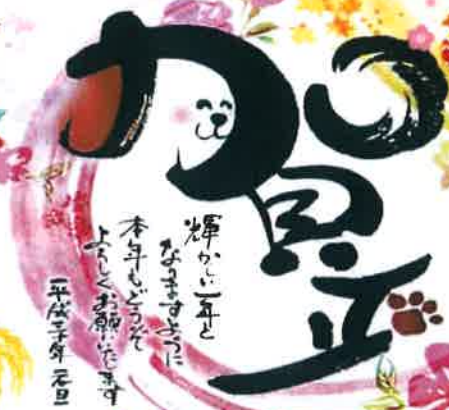 賀正
輝かしい一年と
なりますように
本年もどうぞ
よろしくお願いいたします
平成三十年 元旦